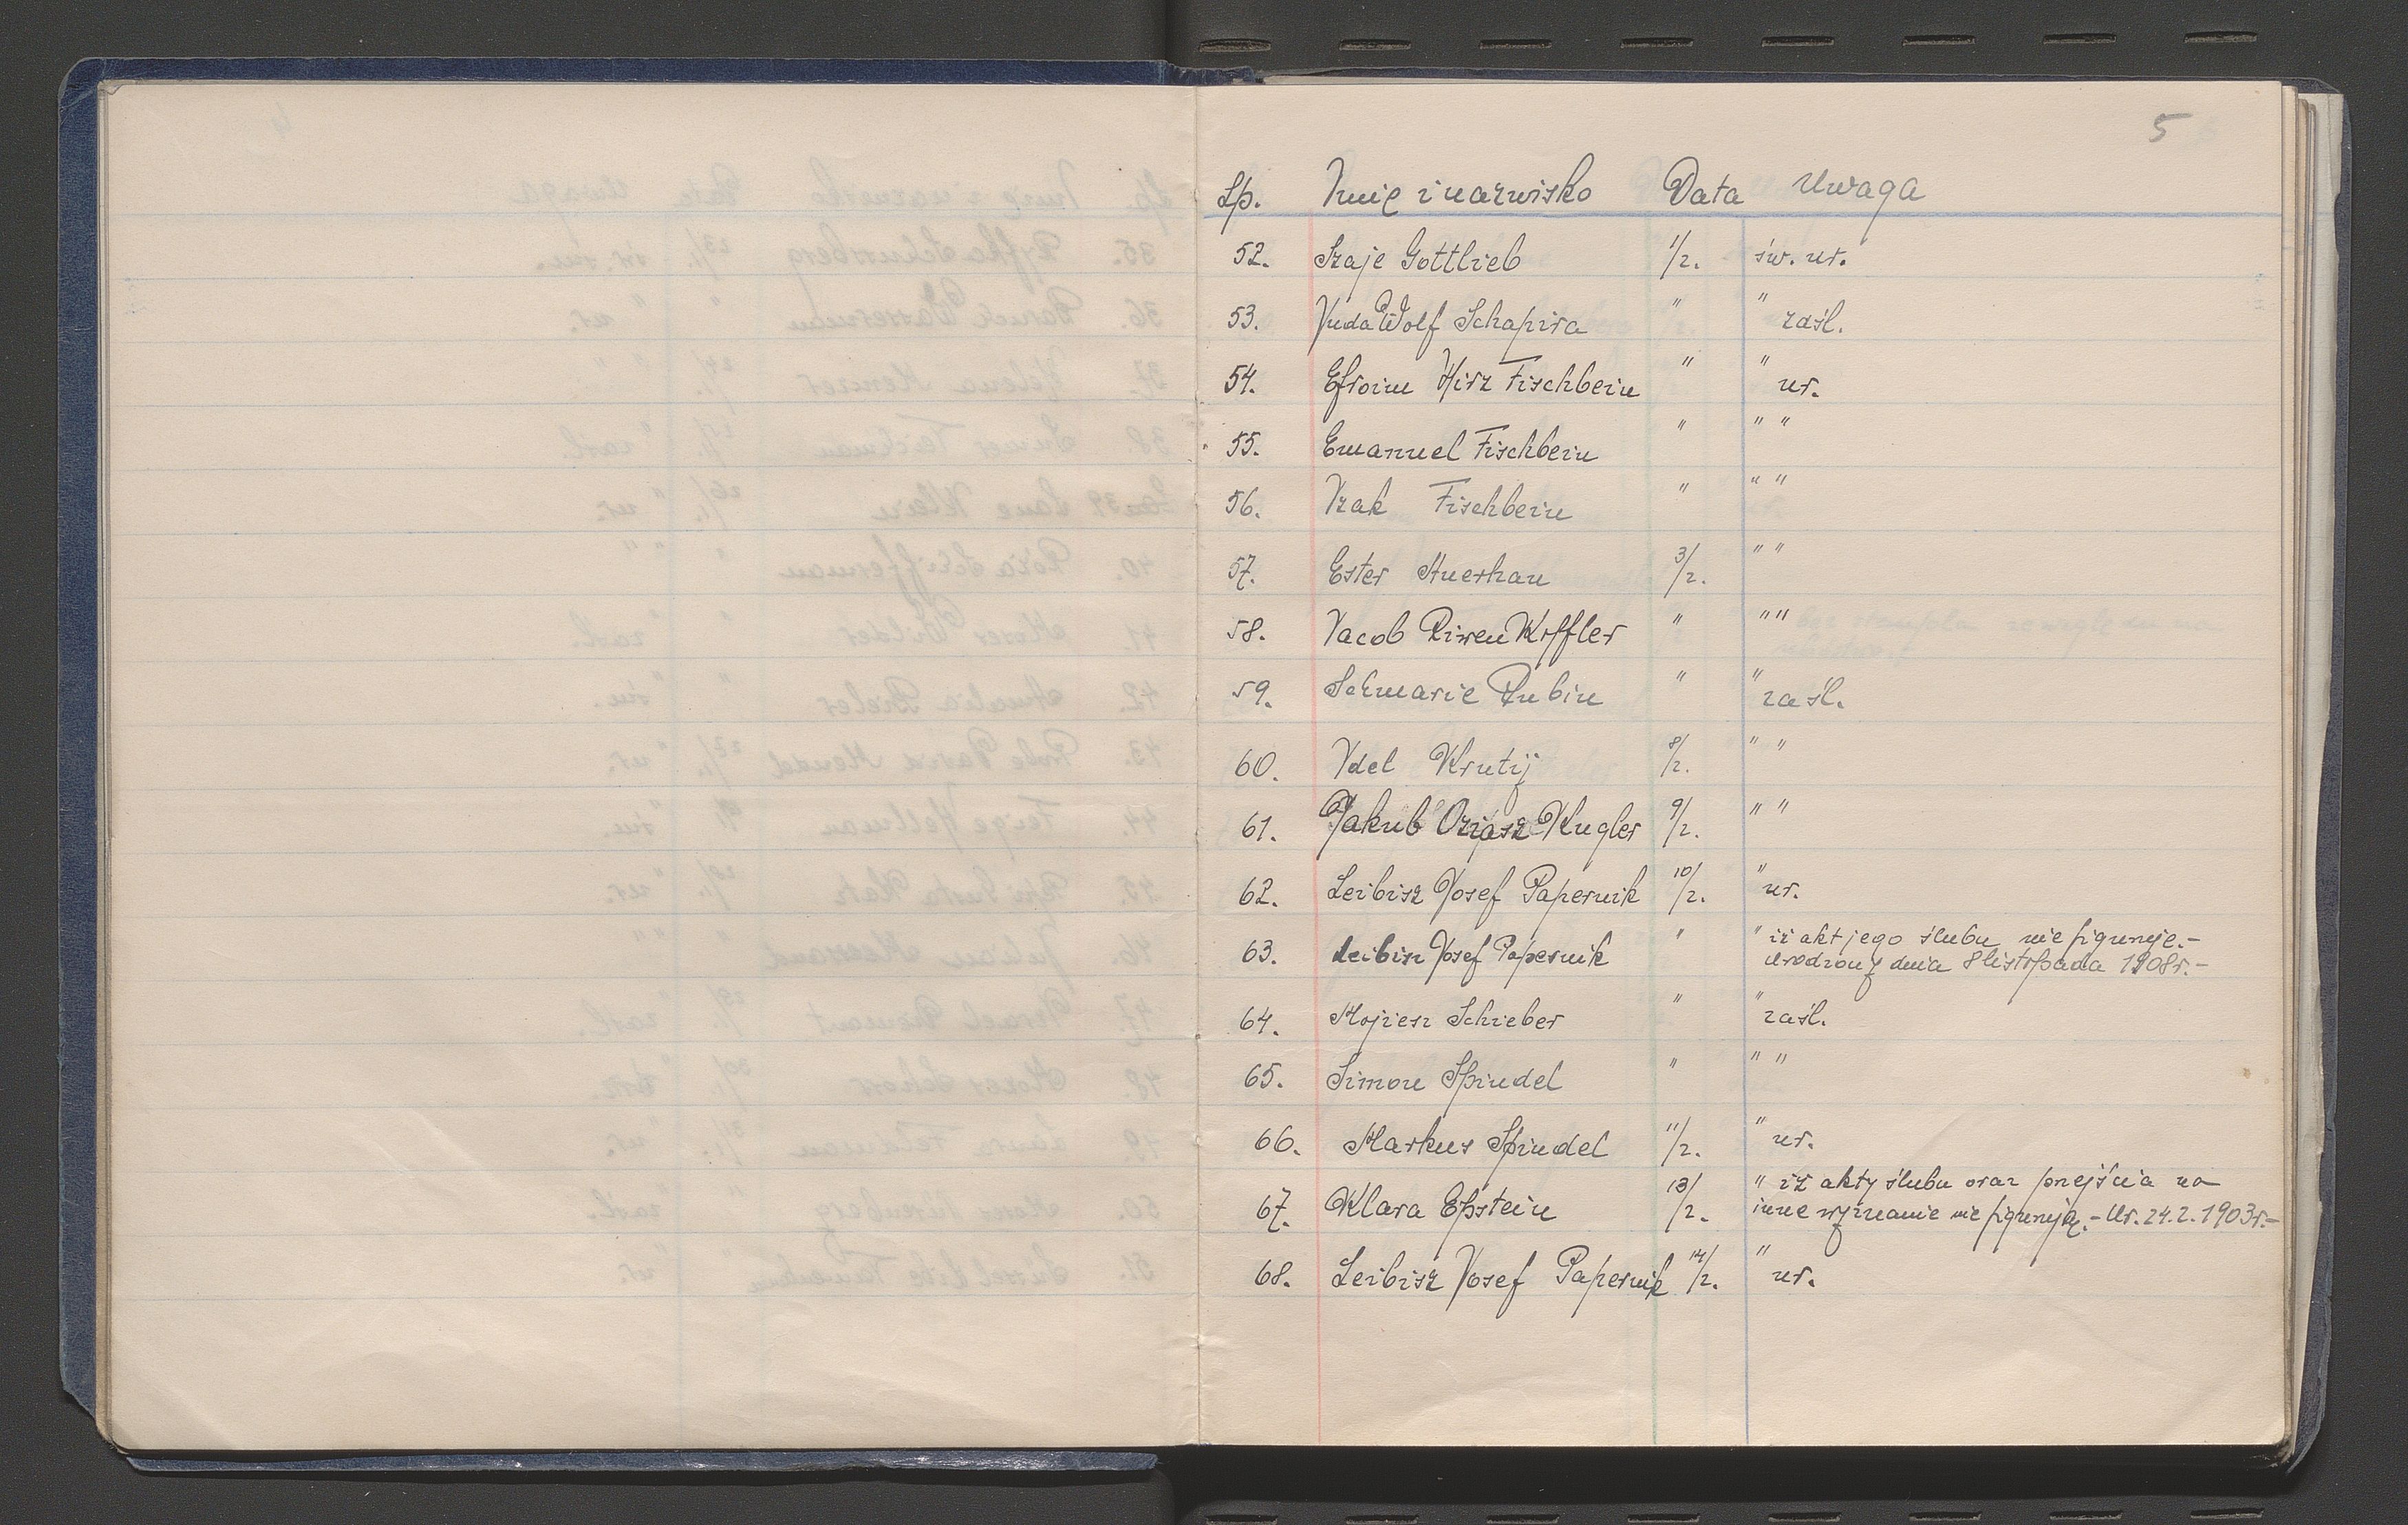 5
Lp. Imię i nazwisko Data Uwaga
52. Szaje Gottlieb 1/2. św. ur.
53. Juda Wolf Schapira " " zaśl.
54. Efroim Hirz Fischbein " " ur.
55. Emanuel Fischbein " " "
56. Izak Fischbein " " "
57. Ester Auerhan 3/2. " "
58. Jacob Riwen Kiffler " " "
59. Schmarie Rubin " " zaśl.
60. Idel Krutij 8/2. " "
61. Jakub Oziasz Kugler 9/2. " "
62. Leibisz Josef Papernik 10/2. " ur.
63. Leibisz Josef Papernik " " iż akt jego ślubu nie figuruje.-
urodzony dnia 8 listopada 1908r.-
64. Mojżesz Schieber " " zaśl.
65. Simon Spindel " " "
66. Markus Spindel 11/2. " ur.
67. Klara Epstein 13/2. " iż akty ślubu oraz przejścia na
inne wyznanie nie figurują.- Ur. 24.2.1903r.-
68. Leibisz Josef Papernik 14/2. " ur.